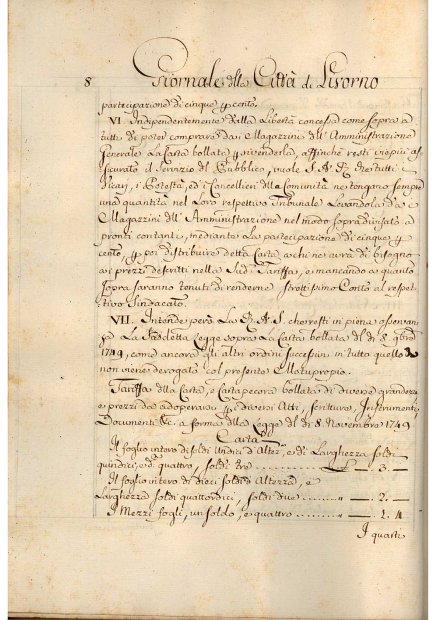 8 Giornale della Città di Livorno
partecipazione di cinque p cento.
VI. Independentemente Dalla Libertà concessa come sopra a
tutti di poter comprare da i Magazzini dell' Amministrazione
Generale La Carta bollata, e rivenderla, affinchè resti viepiù as-
sicurato il Servizio del Pubblico, vuole S. A. R. che tutti i
Vicarj, i Potestà, ed i Cancellieri delle Comunità ne tengano sempre
una quantità nel Loro respettivo Tribunale Levandola da i
Magazzini dell' Amministrazione nel modo sopradivisato a
pronti contanti, mediante La partecipazione di cinque p
cento, p poi distribuire detta Carta a chi ne avrà di bisogno
a i prezzi descritti nella Sud. Tariffa, e mancando a quanto
sopra saranno tenuti di renderne strettissimo Conto al respet-
tivo Sindacato.
VII. Intende però La R. A. S. che resti in piena osservan-
za La Suddetta Legge sopra La Carta bollata del dì 8. 9bre
1749, come ancora gli altri ordini successivi in tutto quello che
non viene derogato col presente Motuproprio.
Tariffa della Carta, e Cartapecora bollata di diverse grandezze
e prezzi da adoperarsi p i diversi Atti, Scritture, Instrumenti,
Documenti &c. a forma della Legge del dì 8. Novembre 1749
Carta
Il foglio intero di soldi Undici d' Altez.a, e di Larghezza soldi
quindici, e d. quattro, soldi tre 3. —
Il foglio intero di dieci soldi d' Altezza, e
Larghezza soldi quattordici, soldi due " — . 2. —
I Mezzi fogli, un soldo, e quattro " — . 1. 4
I quarti